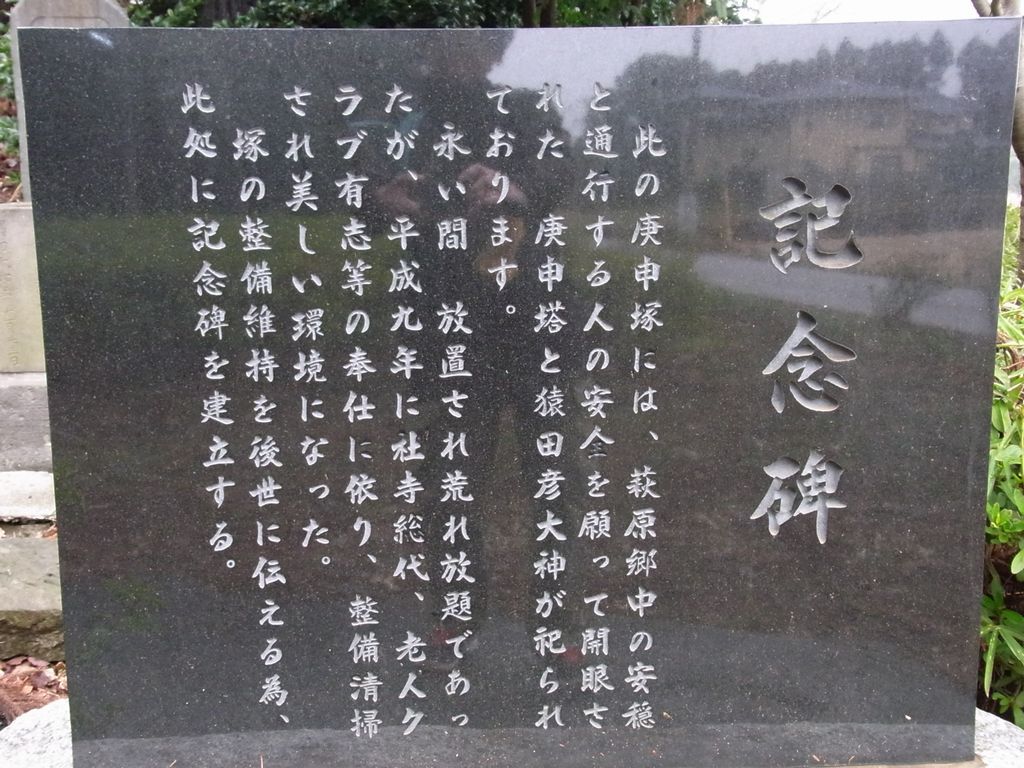 記念碑
此の庚申塚には、萩原郷中の安穏
と通行する人の安全を願って開眼さ
れた 庚申塔と猿田彦大神が祀られ
ております。
永い間 放置され荒れ放題であっ
たが、平成九年に社寺総代、老人ク
ラブ有志等の奉仕に依り、整備清掃
され美しい環境になった。
塚の整備維持を後世に伝える為、
此処に記念碑を建立する。